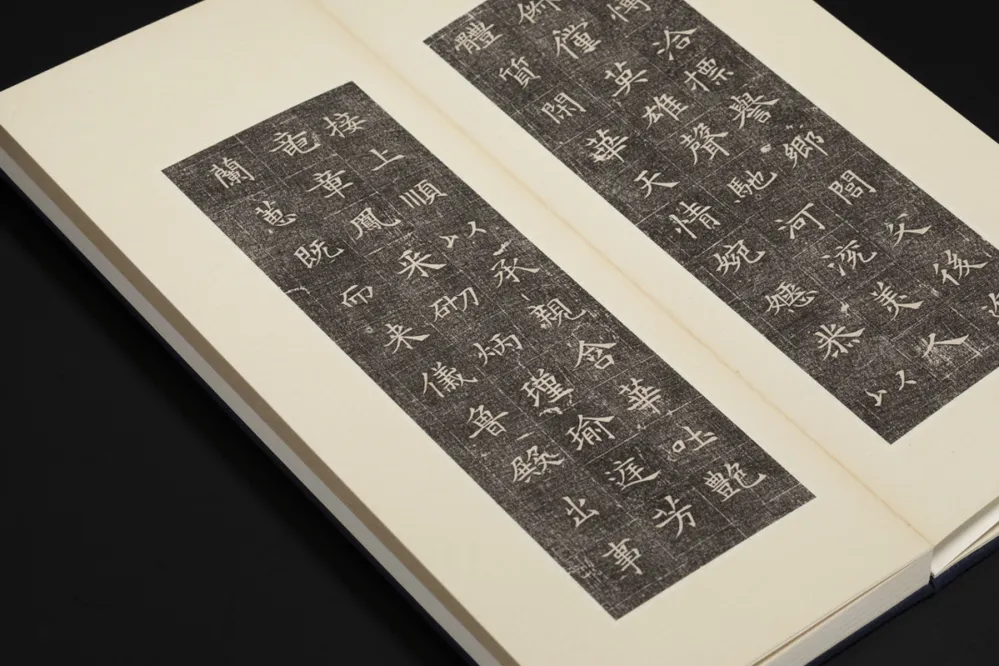 洽標譽鄉閭父後
僮英雄聲馳河流美大
體質閑華天情婉嫕恭以
接上順以承親含華吐艶
竜章鳳采砌炳瑾瑜逕芳
蘭蕙既而来儀魯殿出事